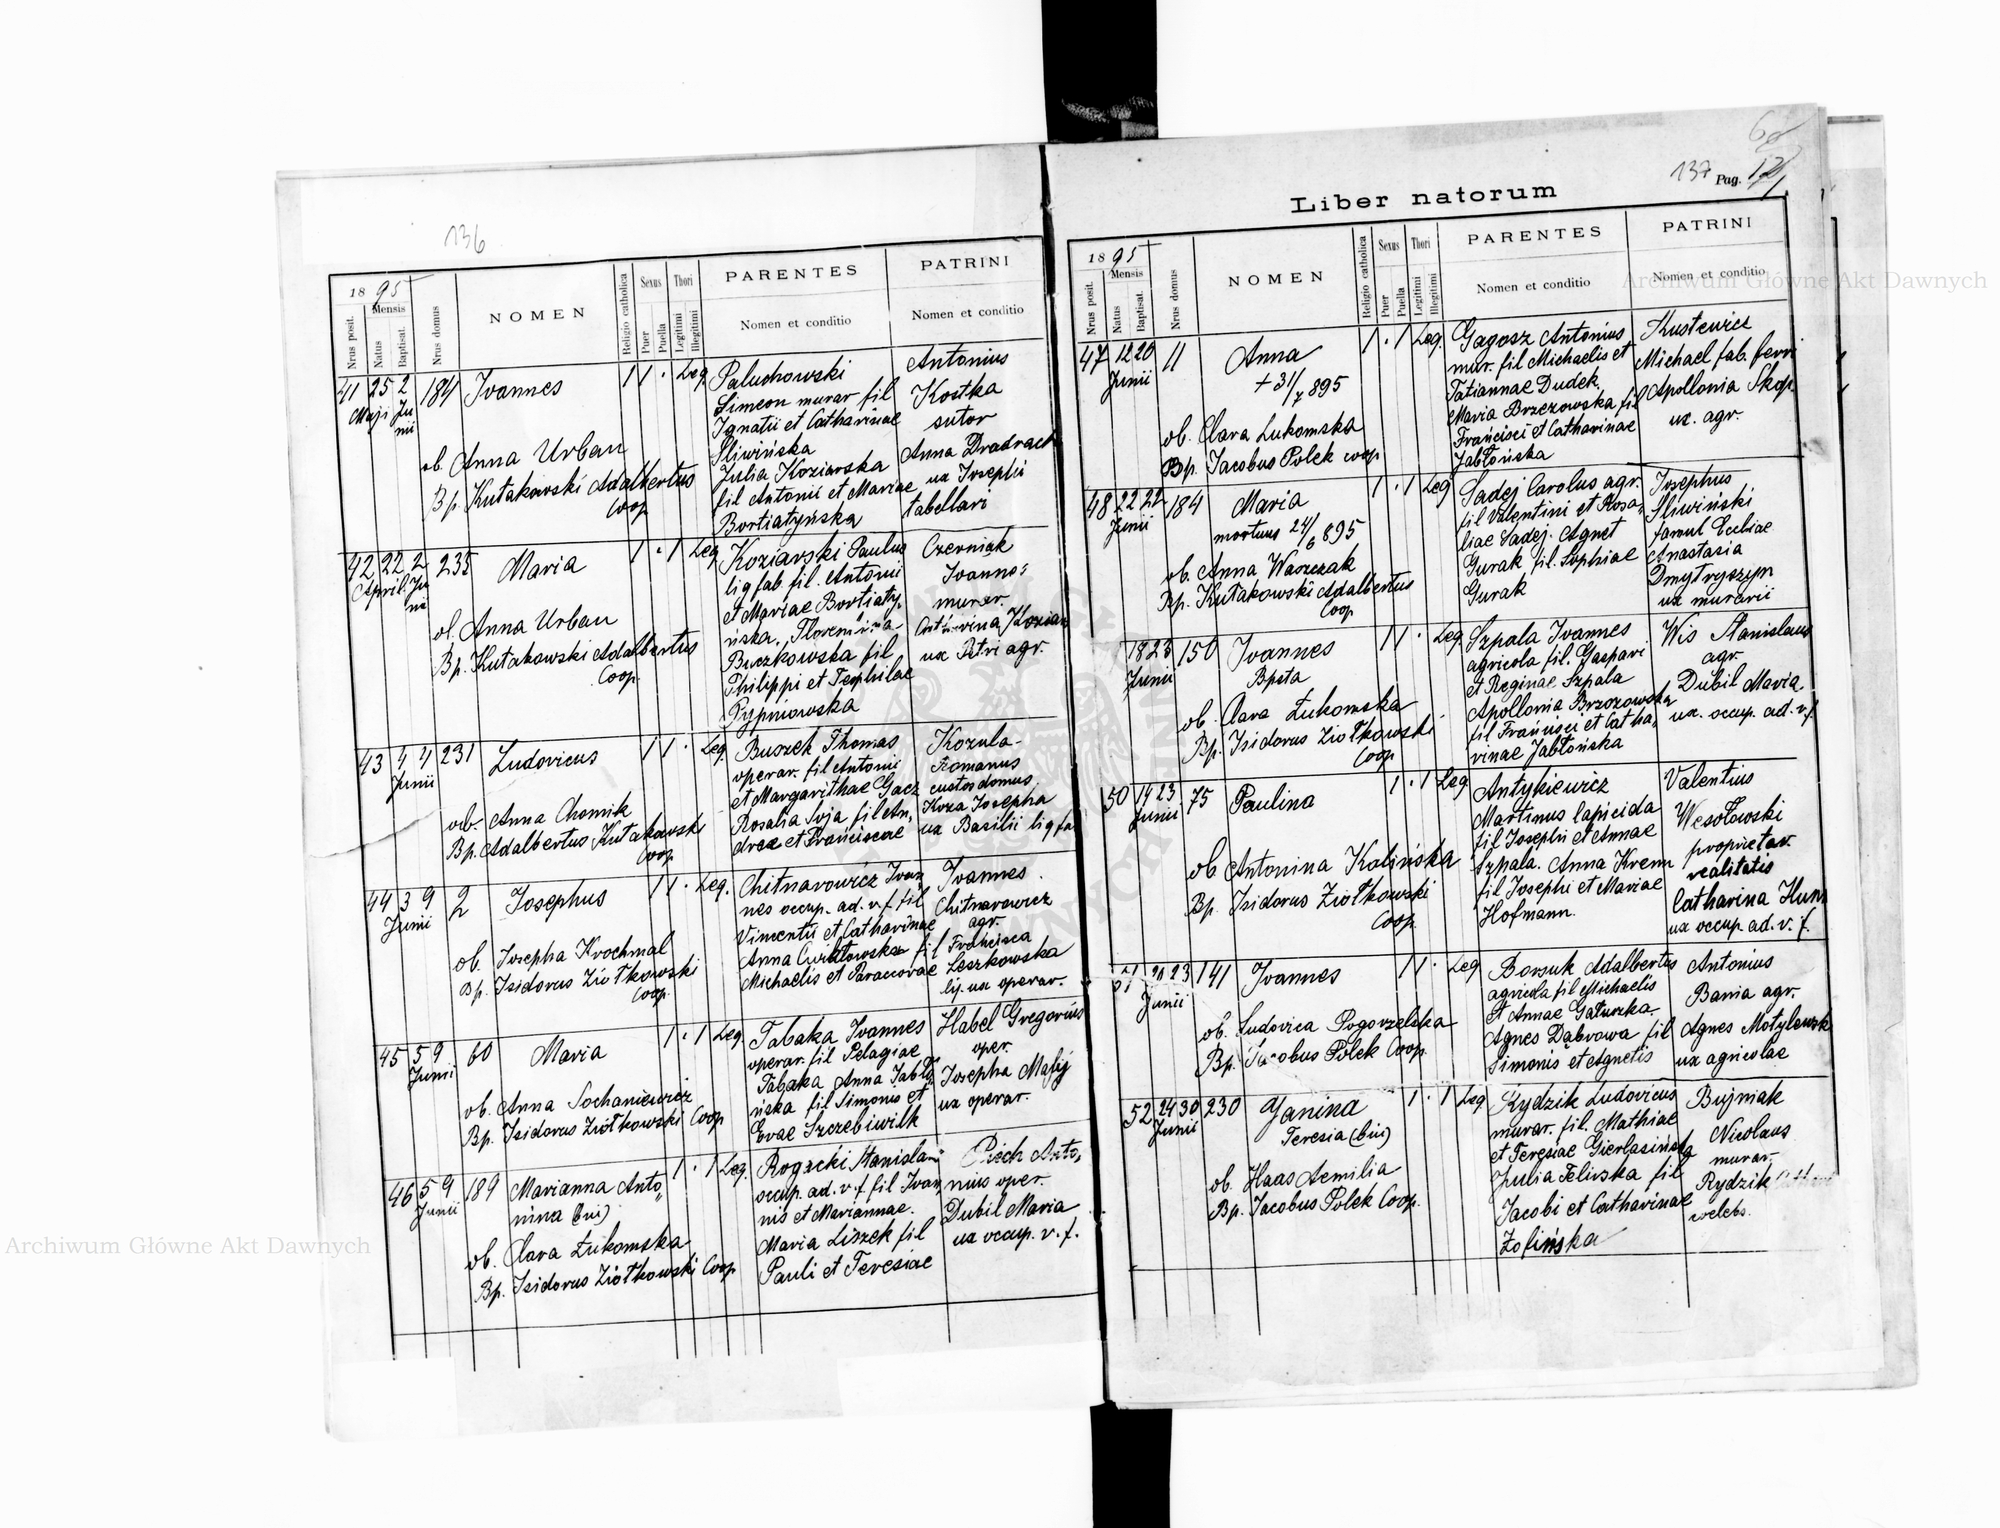 136
18 95
Mensis
Nrus posit.
Natus
Baptisat.
Nrus domus
NOMEN
Religio catholica
Sexus
Puer
Puella
Thori
Legitimi
Illegitimi
PARENTES
Nomen et conditio
PATRINI
Nomen et conditio
41 25 2 184 Ivannes 1 1 · Leg
Maji Junii
ob. Anna Urban
Bp. Kutakowski Adalbertus
Coop
Paluchowski
Simeon murar fil
Ignatii et Catharinae
Śliwińska
Julia Koziarska
fil Antonii et Mariae
Bortiatyńska
Antonius
Kostka
sutor
Anna Dradrach
ux Josephi
tabellari
42 22 2 235 Maria 1 · 1 Leg
April Junii
ob. Anna Urban
Bp. Kutakowski Adalbertus
Coop.
Koziarski Paulus
lig fab. fil. Antonii
et Mariae Bortiaty,
ńska. Florentina
Buczkowska fil
Philippi et Teophilae
Pypniowska
Czerniak
Ivannes
murar.
ux Petri agr.
43 4 4 231 Ludovicus 1 1 · Leg.
Junii
ob. Anna Chomik
Bp. Adalbertus Kutakowski
Coop
Buszek Thomas
operar. fil Antonii
et Margarithae Gacz
Rosalia Soja fil An,
dreae et Franciscae
Kozula
Romanus
custos domus.
Koza Josepha
ux Basilii lig fa
44 3 9 2 Josephus 1 1 · Leg.
Junii
ob. Josepha Krochmal
Bp. Isidorus Ziółkowski
Coop.
Chitnarowicz Ivan
nes occup. ad. v. f. fil
Vincentii et Catharinae
Michaelis et
Ivannes.
Chitnarowicz
agr.
Francisca
Leszkowska
ux operar.
45 5 9 60 Maria 1 · 1 Leg
Junii
ob. Anna Sochaniewicz
Bp. Isidorus Ziółkowski Coop
Tabaka Ivannes
operar. fil Pelagiae
Tabaka Anna Jabło
ńska fil Simonis et
Evae Szczebiwilk
Habel Gregorius
oper.
Josepha Malij
ux operar.
46 5 9 189 Marianna Anto, 1 · 1 Leg.
Junii nina (bin)
ob. Clara Łukomska
Bp. Isidorus Ziółkowski Coop
Rogacki Stanislaus
occup. ad. v. f. fil Ivan
nis et Mariannae.
Maria Liszek fil
Pauli et Teresiae
Piech Anto,
nius oper.
Dubil Maria
ux occup. v. f.
137 Pag.
Liber natorum
18 95
Mensis
Nrus posit.
Natus
Baptisat.
Nrus domus
NOMEN
Religio catholica
Sexus
Puer
Puella
Thori
Legitimi
Illegitimi
PARENTES
Nomen et conditio
PATRINI
Nomen et conditio
47 12 20 11 Anna 1 · 1 Leg.
Junii + 31/7 895
ob. Clara Łukomska
Bp. Jacobus Polek coop
Gagosz Antonius
mur. fil Michaelis et
Tatiannae Dudek.
Maria Brzezowska fil
Francisci et Catharinae
Jabłońska
Kustewicz
Michael fab. ferri
Apollonia Skop.
ux. agr.
48 22 22 184 Maria 1 · 1 Leg
Junii mortuus 24/6 895
ob. Anna Waszczak
Bp. Kutakowski Adalbertus
Coop
Sadej Carolus agr.
fil Valentini et Rosa,
liae Sadej. Agnet
Gurak fil. Sophiae
Gurak
Josephus
Śliwiński
famul Eccliae
Anastasia
Dmytryszyn
ux murarii
18 23 150 Ivannes 1 1 · Leg.
Junii Bpsta
ob. Clara Łukomska
Bp. Isidorus Ziółkowski
Coop
Szpala Ivannes
agricola fil. Gaspari
et Reginae Szpala
Apollonia Brzozowska
fil Francisci et Catha,
rinae Jabłońska
Wis Stanislaus
agr.
Dubil Maria
ux. occup. ad. v. f.
50 14 23 75 Paulina 1 · 1 Leg
Junii
ob Antonina Kalińska
Bp. Isidorus Ziółkowski
Coop.
Antykiewicz
Martinus lapicida
fil Josephi et Annae
Szpala. Anna Krem
fil Josephi et Mariae
Hofmann.
Valentius
Wesołowski
proprietar.
realitatis
Catharina Hunn
ux occup. ad. v. f.
51 20 23 141 Ivannes 1 1 · Leg
Junii
ob. Ludovica Pogorzelska
Bp. Jacobus Polek Coop.
Borsuk Adalbertus
agricola fil Michaelis
et Annae Gałuszka.
Agnes Dąbrowa fil
Simonis et Agnetis
Antonius
Bania agr.
Agnes Motylewsk
ux agricolae
52 24 30 230 Janina 1 · 1 Leg
Junii Teresia (bin)
ob. Haas Aemilia
Bp. Jacobus Polek Coop.
Rydzik Ludovicus
murar. fil. Mathiae
et Teresiae Gierlasińska
Julia Teliuska fil
Jacobi et Catharinae
Zolińska
Bujniak
Nicolaus
murar.
Rydzik
coelebs.
Archiwum Główne Akt Dawnych
Archiwum Główne Akt Dawnych